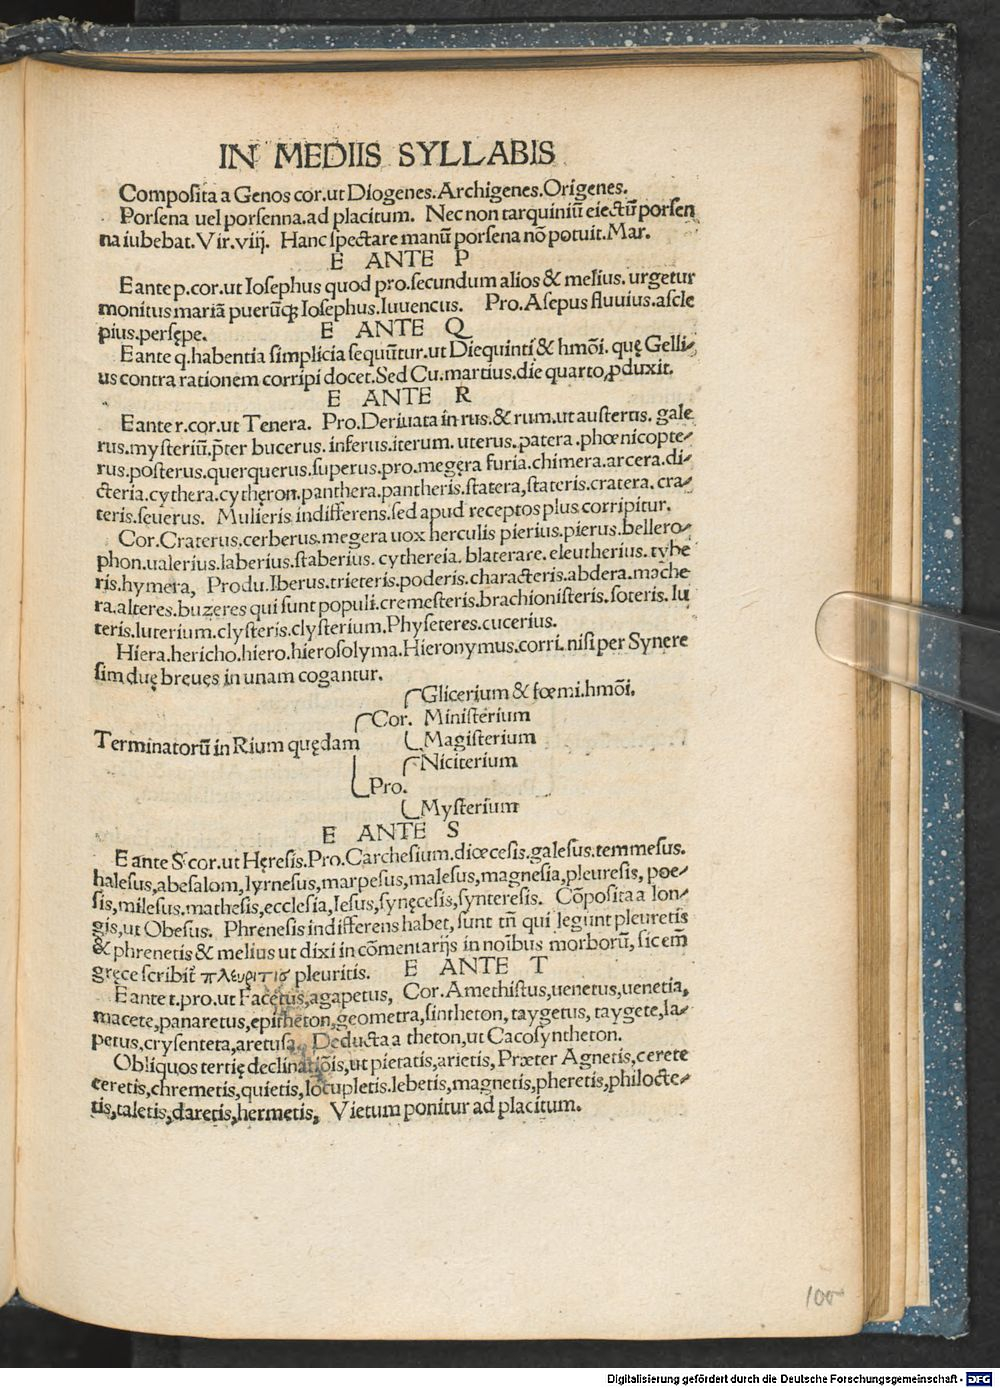 IN MEDIIS SYLLABIS
Composita a Genos cor. ut Diogenes. Archigenes. Origenes.
Porsena uel porsenna. ad placitum. Nec non tarquiniū eiectū porsen
na iubebat. Vir. viij. Hanc spectare manū porsena nō potuit. Mar.
E ANTE P
E ante p. cor. ut Iosephus quod pro. secundum alios & melius. urgetur
monitus mariā puerūq; Iosephus. Iuuencus. Pro. Asepus fluuius. ascle
pius. persępe.
E ANTE Q
E ante q. habentia simplicia sequūtur. ut Diequinti & hmōi. quę Gelli⸗
us contra rationem corripi docet. Sed Cu. martius. die quarto, ꝓduxit.
E ANTE R
E ante r. cor. ut Tenera. Pro. Deriuata in rus. & rum. ut austerus. gale
rus. mysteriū. p̄ter bucerus. inferus. iterum. uterus. patera. phœnicopte⸗
rus. posterus. querquerus. superus. pro. megęra furia. chimera. arcera. di⸗
cteria. cythera. cythęron. panthera. pantheris. statera, stateris. cratera. cra⸗
teris. seuerus. Mulieris indifferens. sed apud receptos plus corripitur.
Cor. Craterus. cerberus. megera uox herculis pierius. pierus. bellero⸗
phon. ualerius. laberius. staberius. cythereia. blaterare. eleutherius. tybe
ris. hymera, Produ. Iberus. trieteris. poderis. characteris. abdera. mache
ra. alteres. buzeres qui sunt populi. cremesteris. brachionisteris. soteris. lu
teris. luterium. clysteris. clysterium. Physeteres. cucerius.
Hiera. hericho. hiero. hierosolyma. Hieronymus. corri. nisi per Synere
sim duę breues in unam cogantur.
Glicerium & fœmi. hmōi.
Cor. Ministerium
Terminatorū in Rium quędam Magisterium
Niciterium
Pro.
Mysterium
E ANTE S
E ante S cor. ut Hęresis. Pro. Carchesium. diœcesis. galesus. temmesus.
halesus, abesalom, lyrnesus, marpesus, malesus, magnesia, pleuresis, poe⸗
sis, milesus. mathesis, ecclesia, Iesus, synęcesis, synteresis. Cōposita a lon⸗
gis, ut Obesus. Phrenesis indifferens habet, sunt tn̄ qui legunt pleuretis
& phrenetis & melius ut dixi in cōmentarijs in noībus morborū, sic em̄
gręce scribit̄ πλευριτισ pleuritis.
E ANTE T
E ante t. pro. ut Facetus, agapetus, Cor. Amethistus, uenetus, uenetia,
macete, panaretus, epitheton, geometra, sintheton, taygetus, taygete, ia⸗
petus, crysenteta, aretusa, Deducta a theton, ut Cacosyntheton.
Obliquos tertię declinatiōis, ut pietatis, arietis, Præter Agnetis, cerete
ceretis, chremetis, quietis, locupletis. lebetis, magnetis, pheretis, philocte⸗
tis, taletis, daretis, hermetis, Vietum ponitur ad placitum.
100
Digitalisierung gefördert durch die Deutsche Forschungsgemeinschaft - DFG